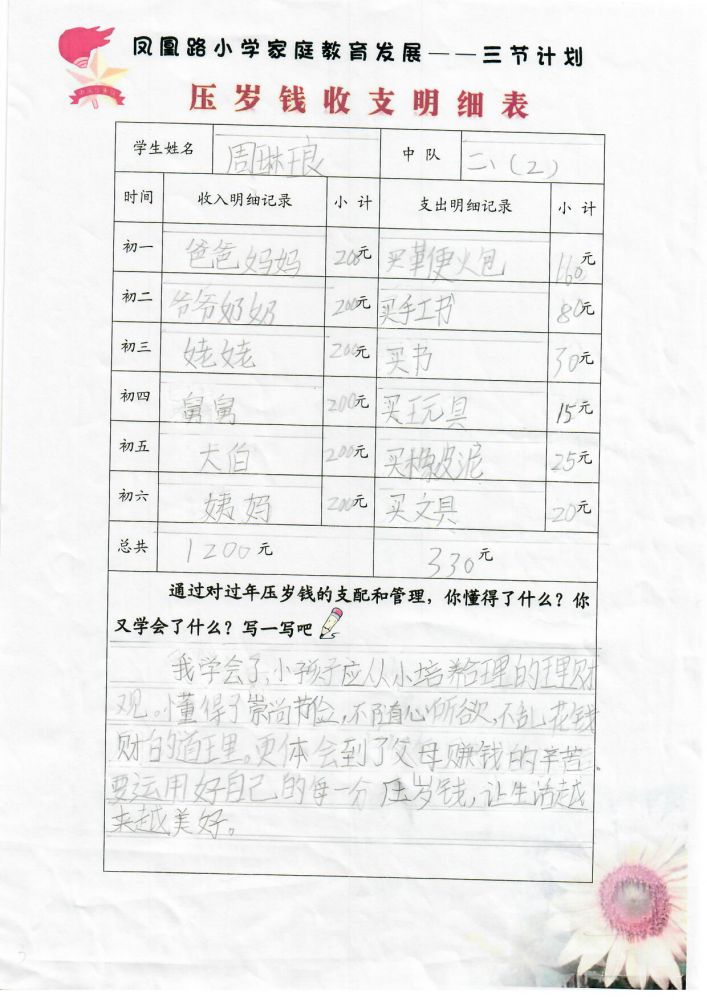 凤凰路小学家庭教育发展——三节计划
压岁钱收支明细表
学生姓名 周琳琅 中队 二、(2)
时间 收入明细记录 小计 支出明细记录 小计
初一 爸爸妈妈 200元 买鞭炮火包 160元
初二 爷爷奶奶 200元 买手工书 80元
初三 姥姥 200元 买书 30元
初四 舅舅 200元 买玩具 15元
初五 大伯 200元 买橡皮泥 25元
初六 姨妈 200元 买文具 20元
总共 1200元 330元
通过对过年压岁钱的支配和管理,你懂得了什么?你
又学会了什么?写一写吧
我学会了,小孩子应从小培养合理的理财
观。懂得了崇尚节俭,不随心所欲,不乱花钱
财的道理。更体会到了父母赚钱的辛苦.
要运用好自己的每一分压岁钱,让生活越
来越美好。